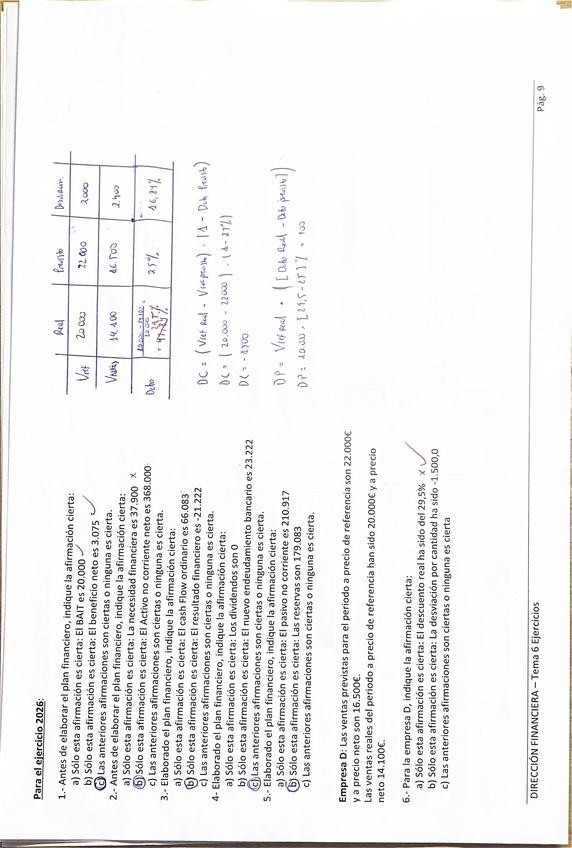 Para el ejercicio 2026:
1.- Antes de elaborar el plan financiero, indique la afirmación cierta:
a) Sólo esta afirmación es cierta: El BAIT es 20.000 ✓
b) Sólo esta afirmación es cierta: El beneficio neto es 3.075 ✓
c) Las anteriores afirmaciones son ciertas o ninguna es cierta.
2.- Antes de elaborar el plan financiero, indique la afirmación cierta:
a) Sólo esta afirmación es cierta: La necesidad financiera es 37.900 x
b) Sólo esta afirmación es cierta: El Activo no corriente neto es 368.000
c) Las anteriores afirmaciones son ciertas o ninguna es cierta.
3.- Elaborado el plan financiero, indique la afirmación cierta:
a) Sólo esta afirmación es cierta: El Cash Flow ordinario es 66.083
b) Sólo esta afirmación es cierta: El resultado financiero es -21.222
c) Las anteriores afirmaciones son ciertas o ninguna es cierta.
4- Elaborado el plan financiero, indique la afirmación cierta:
a) Sólo esta afirmación es cierta: Los dividendos son 0
b) Sólo esta afirmación es cierta: El nuevo endeudamiento bancario es 23.222
c) Las anteriores afirmaciones son ciertas o ninguna es cierta.
5.- Elaborado el plan financiero, indique la afirmación cierta:
a) Sólo esta afirmación es cierta: El pasivo no corriente es 210.917
b) Sólo esta afirmación es cierta: Las reservas son 179.083
c) Las anteriores afirmaciones son ciertas o ninguna es cierta.
Empresa D: Las ventas previstas para el periodo a precio de referencia son 22.000€
y a precio neto son 16.500€.
Las ventas reales del periodo a precio de referencia han sido 20.000€ y a precio
neto 14.100€.
6.- Para la empresa D, indique la afirmación cierta:
a) Sólo esta afirmación es cierta: El descuento real ha sido del 29,5% x ✓
b) Sólo esta afirmación es cierta: La desviación por cantidad ha sido -1.500,0
c) Las anteriores afirmaciones son ciertas o ninguna es cierta
Real Previsto Desviación
Vref 20000 22.000 2.000
Vneta 14.100 16.500 2.400
Dcto 25%
DC = (Vref Real - Vref previsto) · (1 - Dcto Previsto)
DC = (20.000 - 22000) · (1-25%)
DC = -1500
DP = Vref Real · ([Dcto Real - Dcto previsto])
DIRECCIÓN FINANCIERA – Tema 6 Ejercicios
Pág. 9